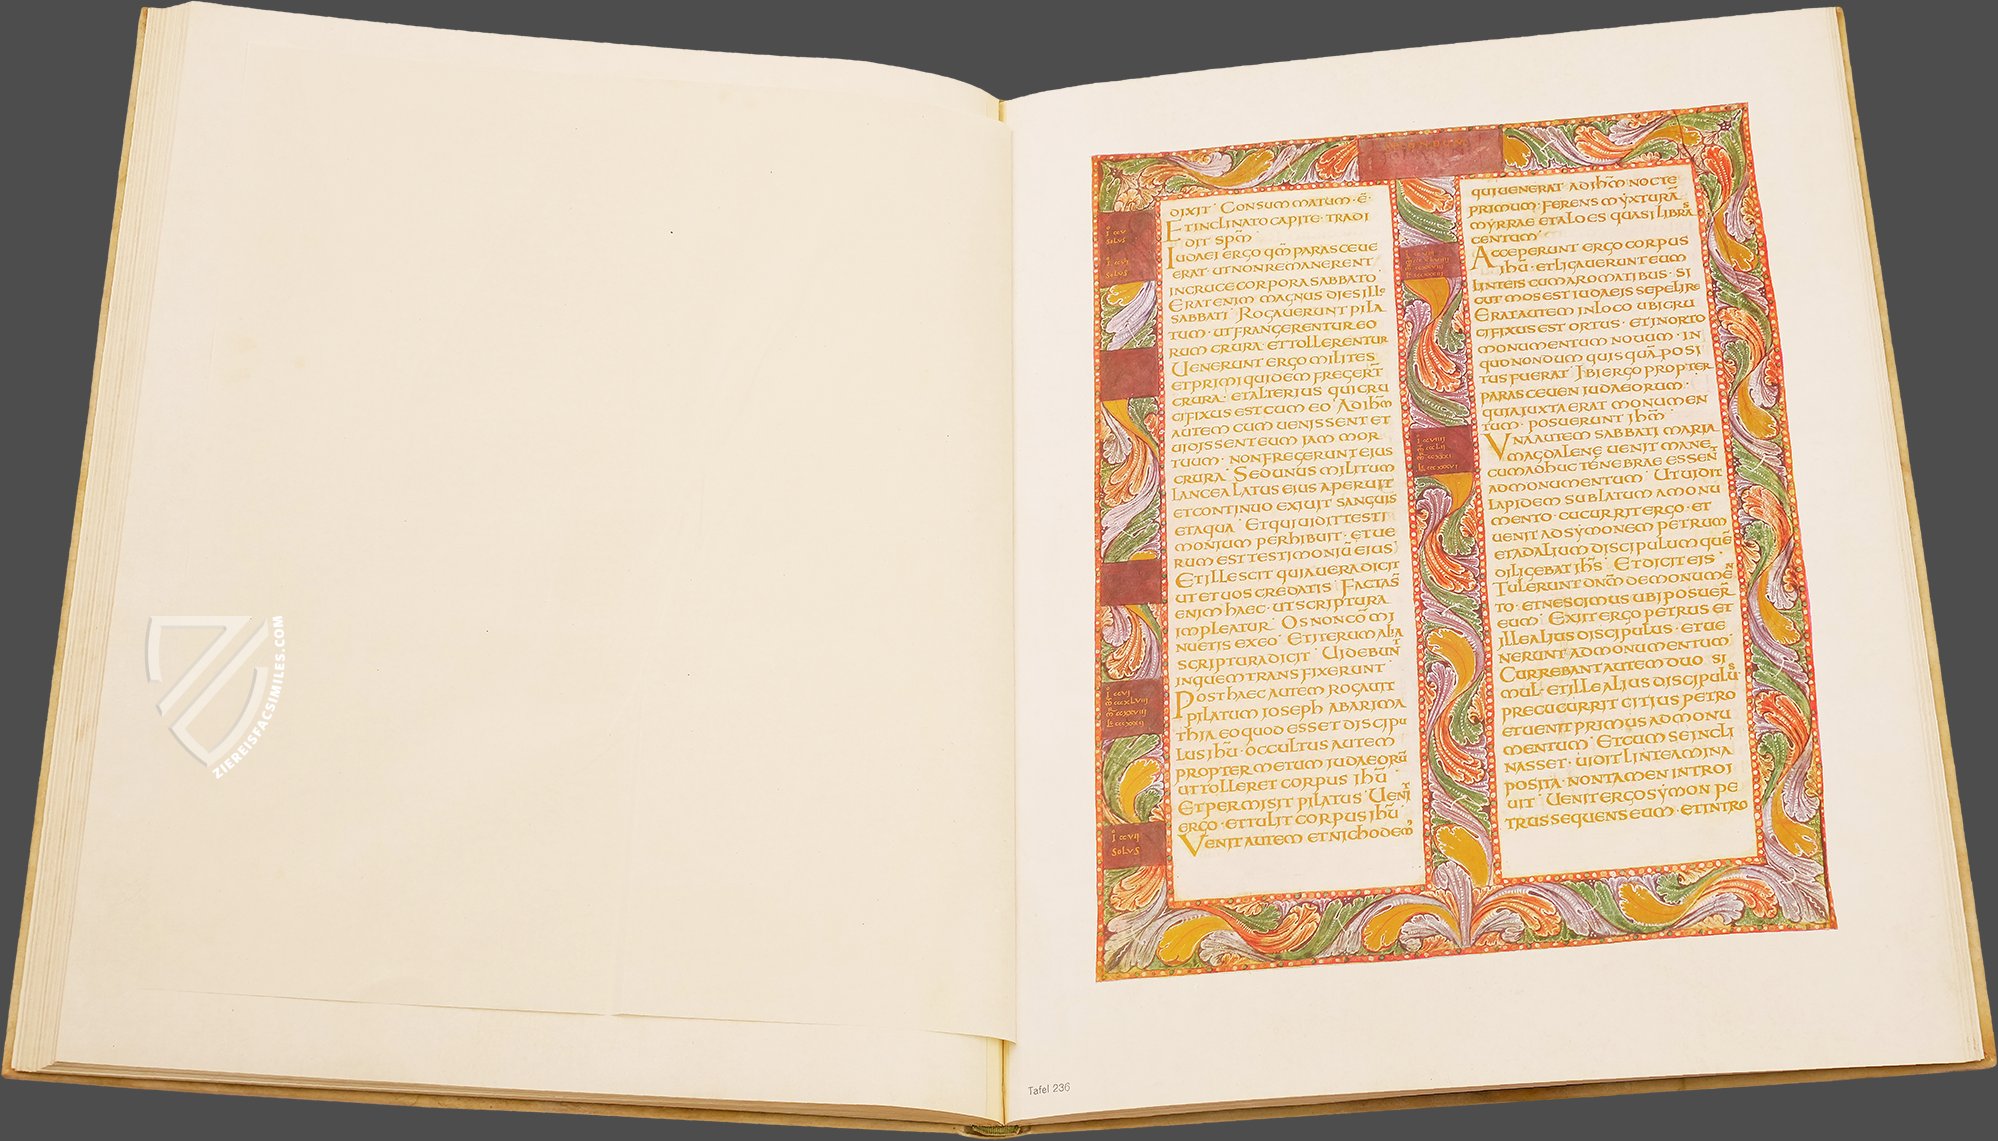 ZIEREISFACSIMILES.COM
DIXIT· CONSUMMATUM·Ē·
ETINCLINATO CAPITE·TRADI
DIT SPM̄
IUDAEI ERGO QM̄ PARASCEUE
ERAT·UT NON REMANERENT
IN CRUCE CORPORA SABBATO
ERAT ENIM MAGNUS DIES ILLE
SABBATI· ROGAUERUNT PILA
TUM·UT FRANGERENTUR EO
RUM CRURA·ET TOLLERENTUR
UENERUNT ERGO MILITES
ET PRIMI QUIDEM FREGERT̄
CRURA·ET ALTERIUS QUI CRU
CIFIXUS EST CUM EO· AD IHM̄
AUTEM CUM UENISSENT ET
UIDISSENT EUM IAM MOR
TUUM·NON FREGERUNT EIUS
CRURA· SED UNUS MILITUM
LANCEA LATUS EIUS APERUIT
ET CONTINUO EXIUIT SANGUIS
ET AQUA· ET QUI UIDIT TESTI
MONIUM PERHIBUIT·ET UE
RUM EST TESTIMONIŪ EIUS
ET ILLE SCIT QUIA UERA DICIT
UT ET UOS CREDATIS· FACTA S̄
ENIM HAEC·UT SCRIPTURA
IMPLEATUR· OS NON CŌMI
NUETIS EX EO· ET ITERUM ALIA
SCRIPTURA DICIT· UIDEBUNT
IN QUEM TRANSFIXERUNT
POST HAEC AUTEM ROGAUIT
PILATUM IOSEPH AB ARIMA
THIA EO QUOD ESSET DISCIPU
LUS IHŪ·OCCULTUS AUTEM
PROPTER METUM IUDAEORŪ
UT TOLLERET CORPUS IHŪ
ET PERMISIT PILATUS· UENIT
ERGO·ET TULIT CORPUS IHŪ
VENIT AUTEM ET NICHODEM;
QUI UENERAT AD IHM̄ NOCTE
PRIMUM·FERENS MYXTURĀ
MYRRAE ET ALOES QUASI LIBRAS
CENTUM·
ACCEPERUNT ERGO CORPUS
IHŪ·ET LIGAUERUNT EUM
LINTEIS CUM AROMATIBUS·SI
CUT MOS EST IUDAEIS SEPELIRE
ERAT AUTEM IN LOCO UBI CRU
CIFIXUS EST ORTUS·ET IN ORTO
MONUMENTUM NOUUM·IN
QUO NONDUM QUISQUĀ POSI
TUS FUERAT· IBI ERGO PROPTER
PARASCEUEN IUDAEORUM·
QUIA IUXTA ERAT MONUMEN
TUM·POSUERUNT IHM̄
VNA AUTEM SABBATI MARIA
MAGDALENE UENIT MANE
CUM ADHUC TENEBRAE ESSENT̄
AD MONUMENTUM· UT UIDIT
LAPIDEM SUBLATUM A MONU
MENTO·CUCURRIT ERGO·ET
UENIT AD SYMONEM PETRUM
ET AD ALIUM DISCIPULUM QUĒ
DILIGEBAT IHS̄· ET DICIT EIS·
TULERUNT DNM̄ DE MONUMEN
TO·ET NESCIMUS UBI POSUER̄
EUM· EXIIT ERGO PETRUS ET
ILLE ALIUS DISCIPULUS·ET UE
NERUNT AD MONUMENTUM·
CURREBANT AUTEM DUO SI
MUL·ET ILLE ALIUS DISCIPULUS
PRECUCURRIT CITIUS PETRO
ET UENIT PRIMUS AD MONU
MENTUM· ET CUM SE INCLI
NASSET·UIDIT LINTEAMINA
POSITA·NON TAMEN INTROI
UIT· UENIT ERGO SYMON PE
TRUS SEQUENS EUM·ET INTRO
SOLUS
SOLUS
SOLVS
Tafel 236